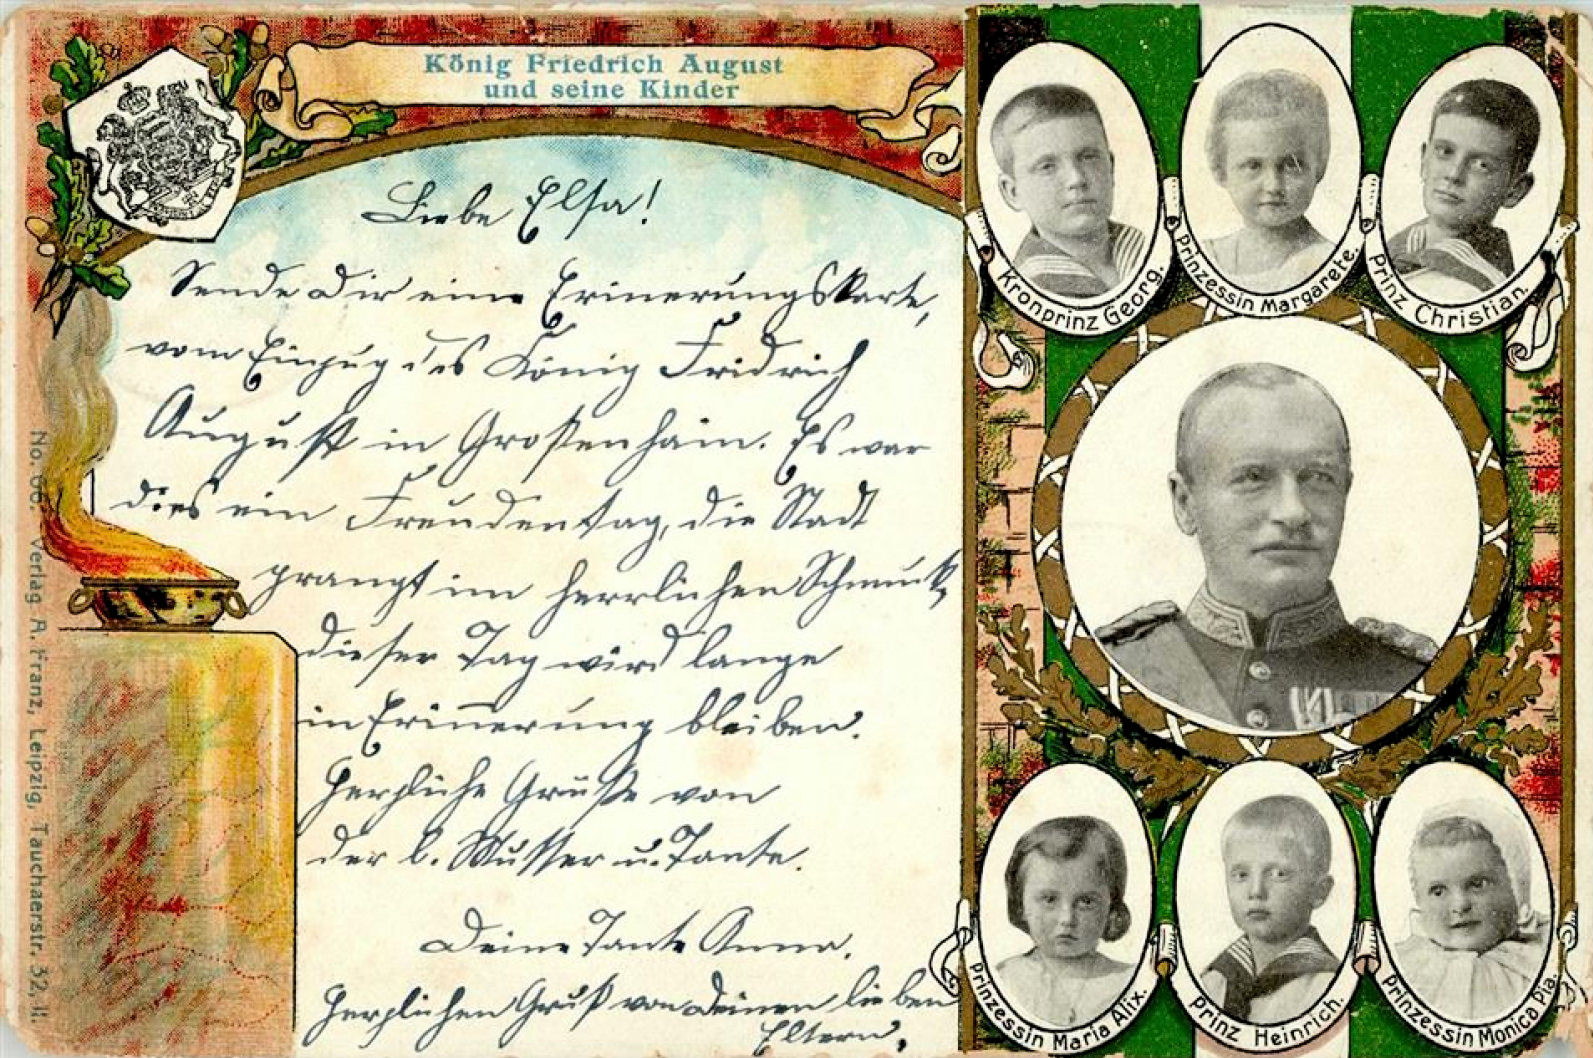 König Friedrich August
und seine Kinder
Liebe Elsa!
Sende Dir eine Erinerungskarte,
vom Einzug des König Fridrich
August in Großenhain. Es war
dies ein Freudentag, die Stadt
prangt im herrlichen Schmuck,
dieser Tag wird lange
in Erinnerung bleiben.
Herzliche Grüße von
der l. Mutter u. Tante.
Deine Tante Anna.
Herzlichen Gruß von Deinen lieben
Eltern.
Kronprinz Georg.
Prinzessin Margarete.
Prinz Christian.
Prinzessin Maria Alix.
Prinz Heinrich.
Prinzessin Monica Pia.
No. 66. Verlag A. Franz, Leipzig, Tauchaerstr. 32, II.